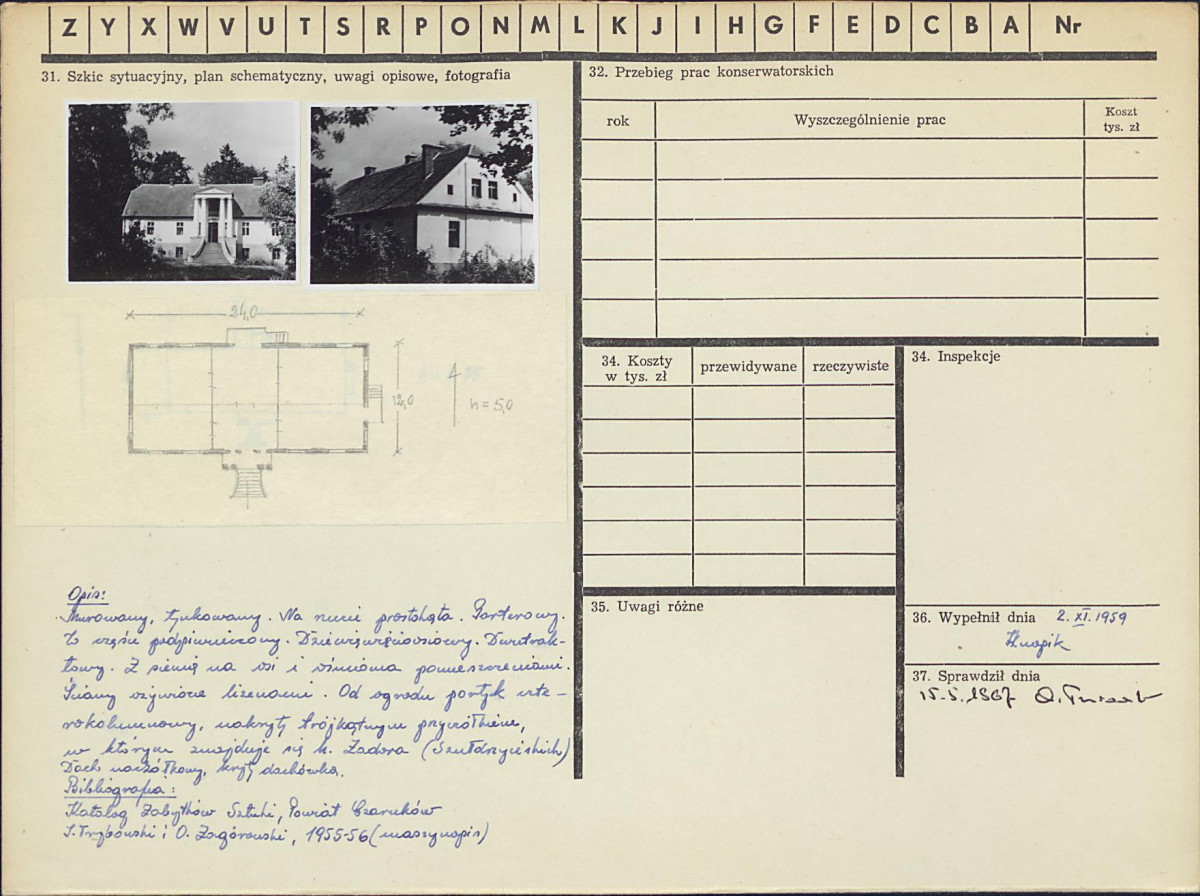 Z Y X W V U T S R P O N M L K J I H G F E D C B A Nr
31. Szkic sytuacyjny, plan schematyczny, uwagi opisowe, fotografia
24,0
12,0
h = 5,0
Opis:
Murowany, tynkowany. Na rzucie prostokąta. Parterowy.
W części podpiwniczony. Dziewięcioosiowy. Dwutrak-
towy. Z sienią na osi i ośmioma pomieszczeniami.
Ściany ożywione lizenami. Od ogrodu portyk czte-
rokolumnowy, nakryty trójkątnym przyczółkiem,
w którym znajduje się h. Zadora (Szułdrzyńskich)
Dach naczółkowy, kryty dachówką.
Bibliografia:
Katalog Zabytków Sztuki, Powiat Czarnków
i O. Zagórowski, 1955-56 (maszynopis)
32. Przebieg prac konserwatorskich
rok
Wyszczególnienie prac
Koszt
tys. zł
34. Koszty
w tys. zł
przewidywane
rzeczywiste
34. Inspekcje
35. Uwagi różne
36. Wypełnił dnia 2. XI. 1959
37. Sprawdził dnia
15.5.1967